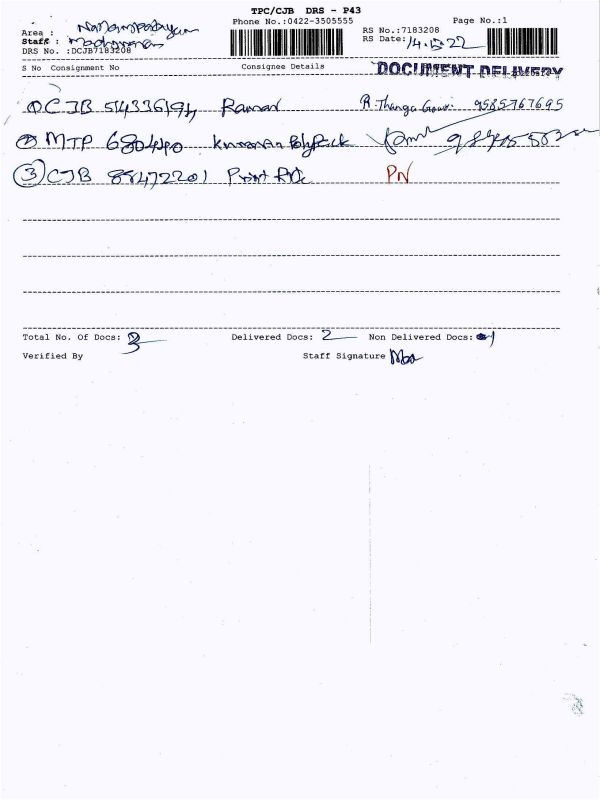 TPC/CJB DRS - P43
Phone No.:0422-3505555
Page No.:1
Area :
Staff :
DRS No. :DCJB7183208
RS No.:7183208
RS Date: 14.5.22
S No Consignment No Consignee Details
DOCUMENT DELIVERY
① CJB 514336194 Raman R. Thanga 9585767695
② MTP 680440
③ CJB 88472201 Print PN
Total No. Of Docs: 3 Delivered Docs: 2 Non Delivered Docs: 1
Verified By Staff Signature